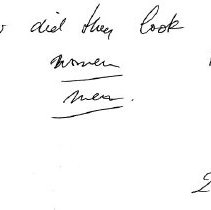 did they look
women
men.